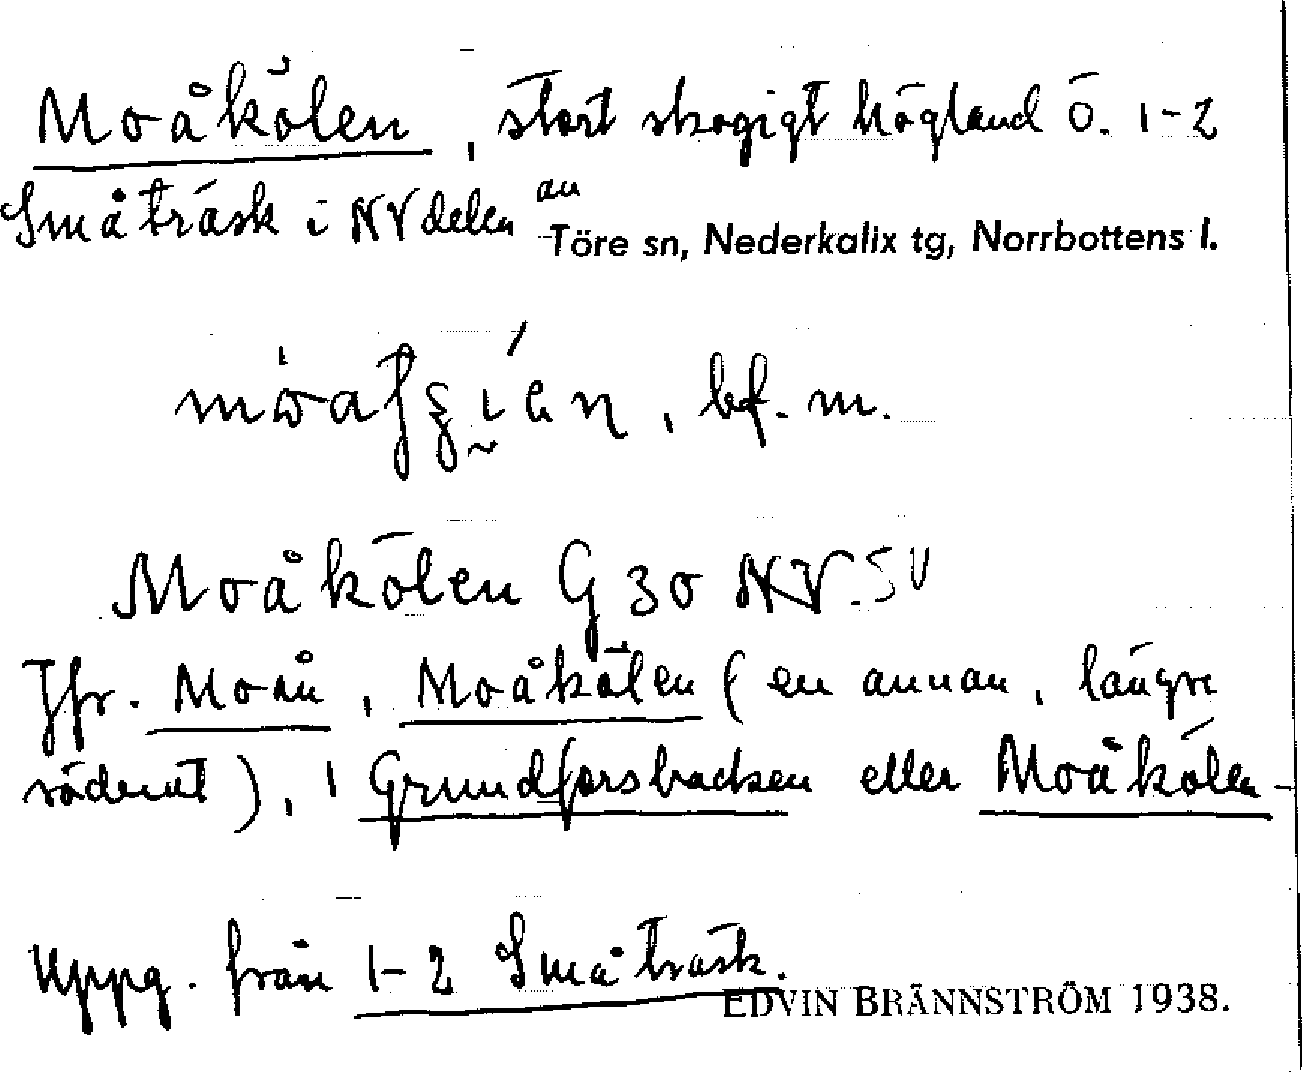 Moåkölen, stort skogigt högland ö. 1-2
Småträsk i NV delen av
Töre sn, Nederkalix tg, Norrbottens l.
bf. m.
Moåkölen G 30 NV. SV
Jfr. Moån, Moåkölen (en annan, längre
söderut), Grundforsbacken eller Moåkölen
Uppg. från 1-2 Småträsk.
EDVIN BRÄNNSTRÖM 1938.